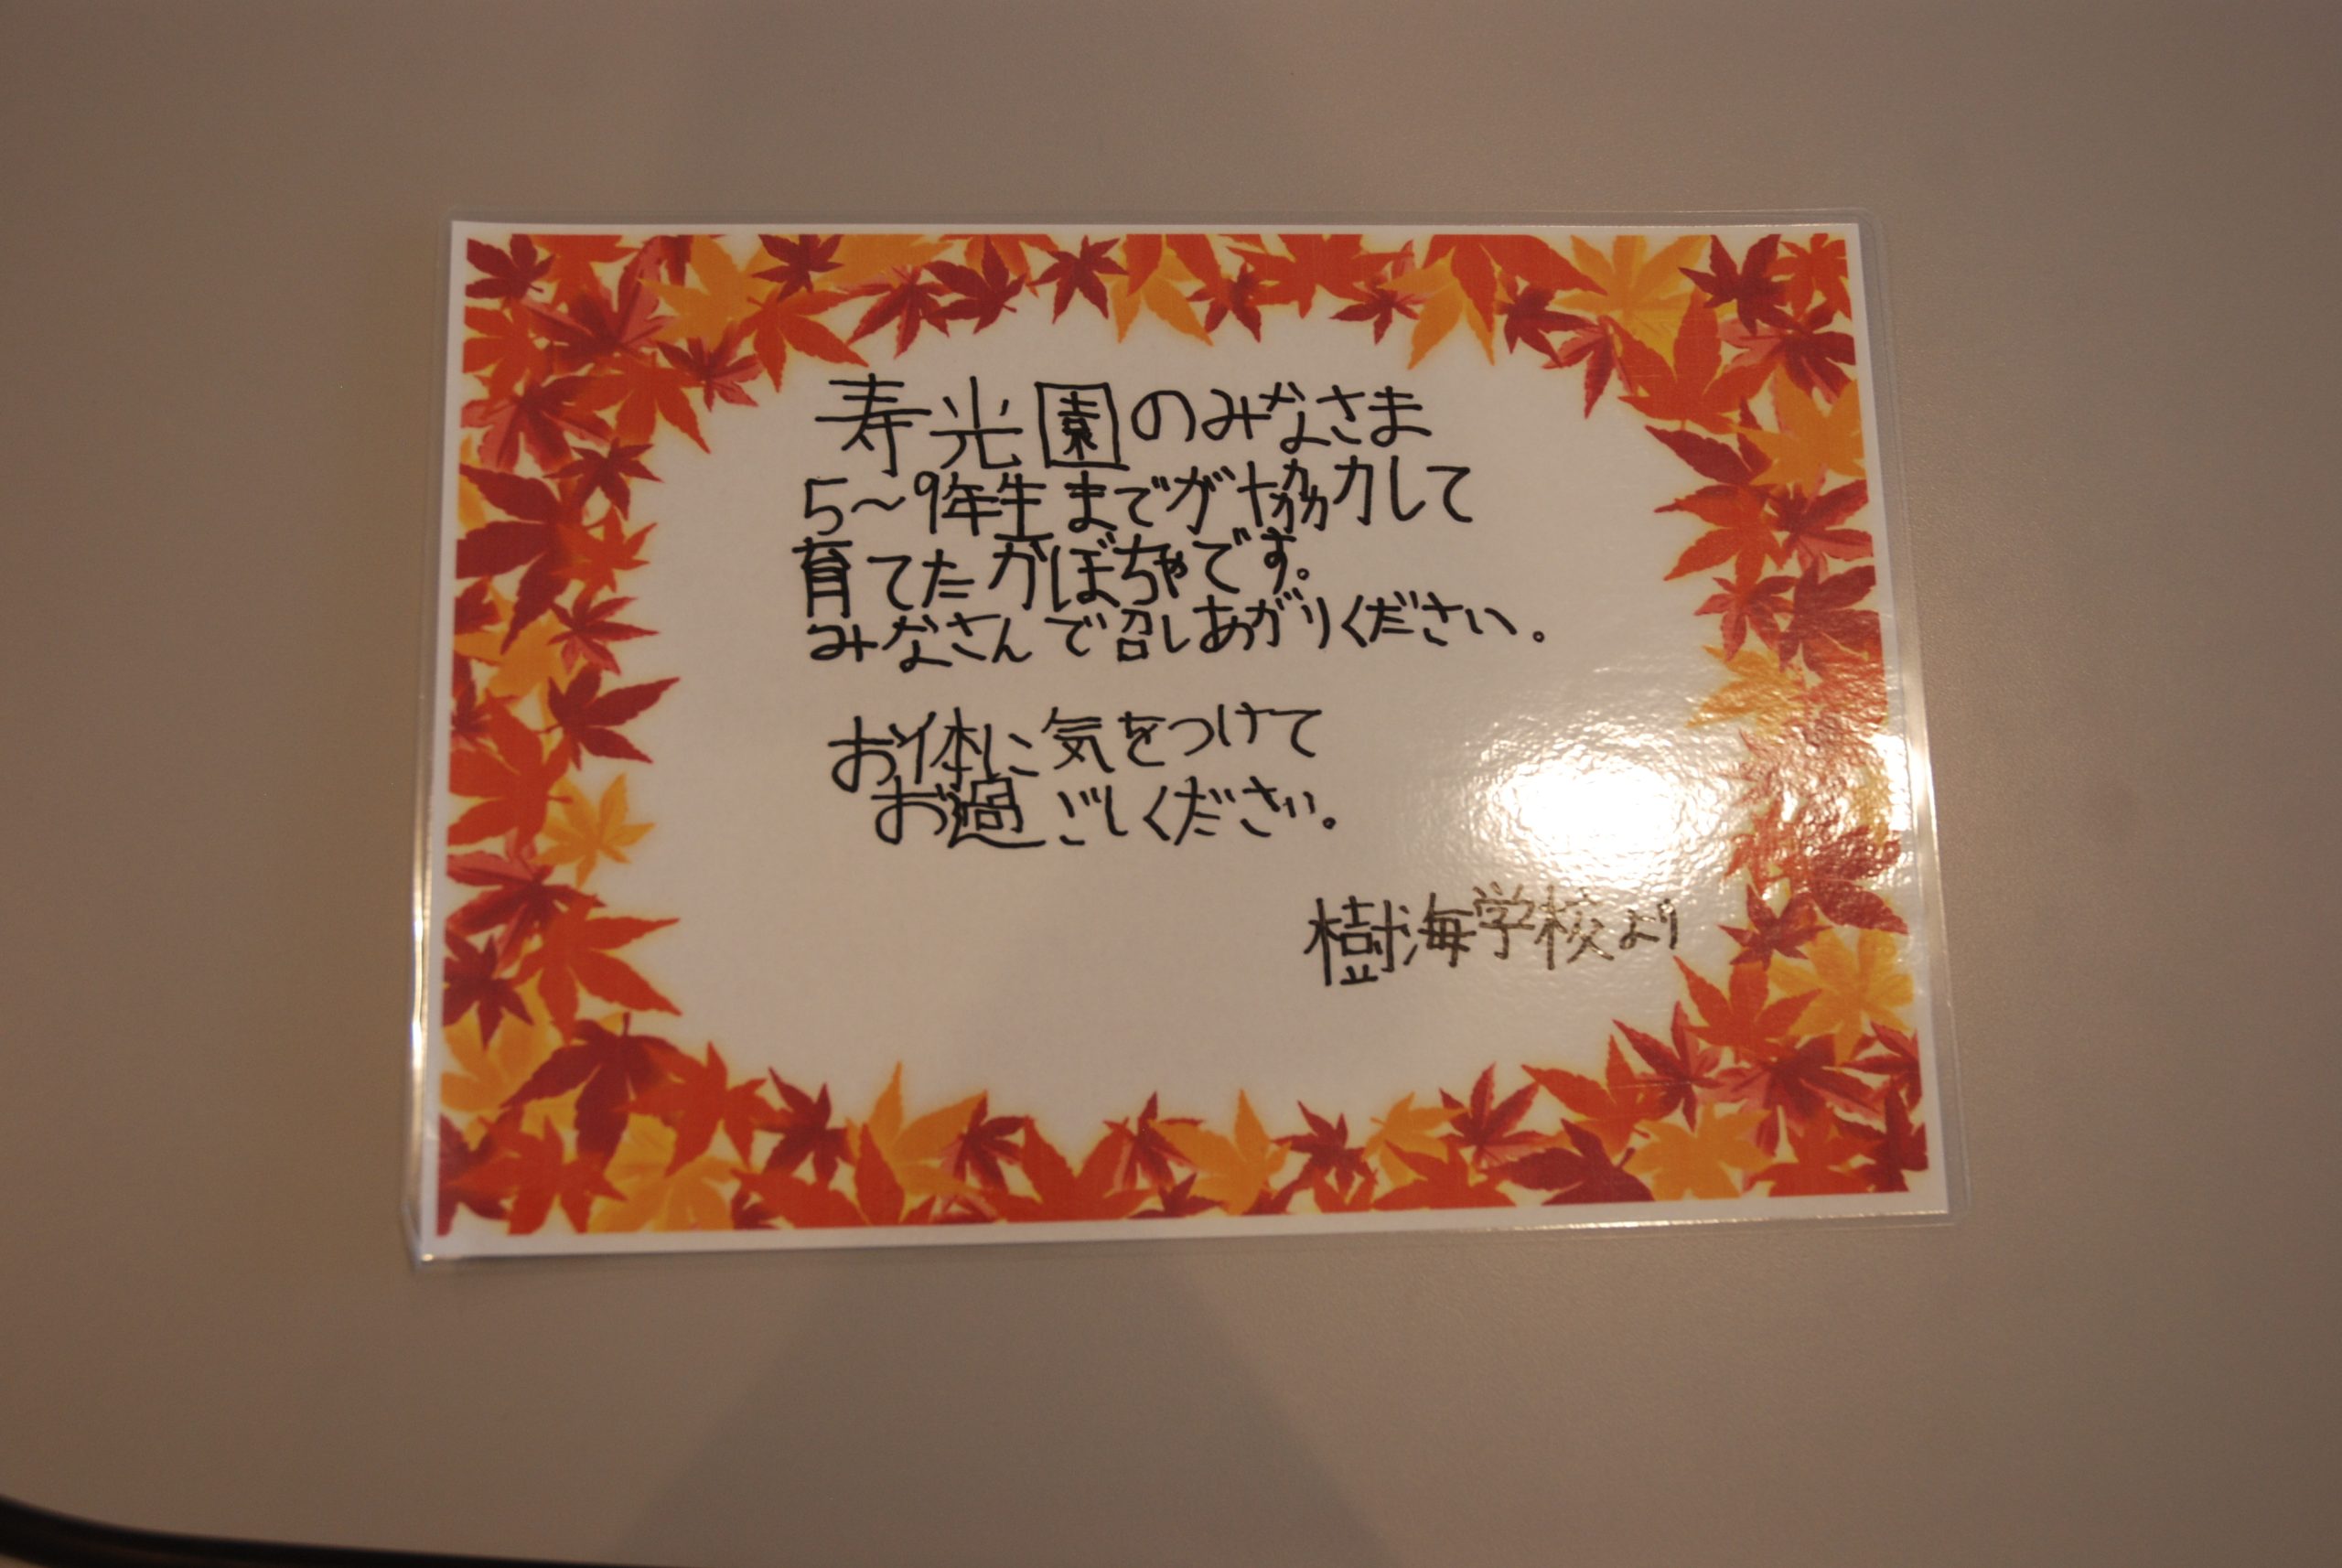 寿光園のみなさま
5～9年生までが協力して
育てたかぼちゃです。
みなさんで召しあがりください。
お体に気をつけて
お過ごしください。
樹海学校より